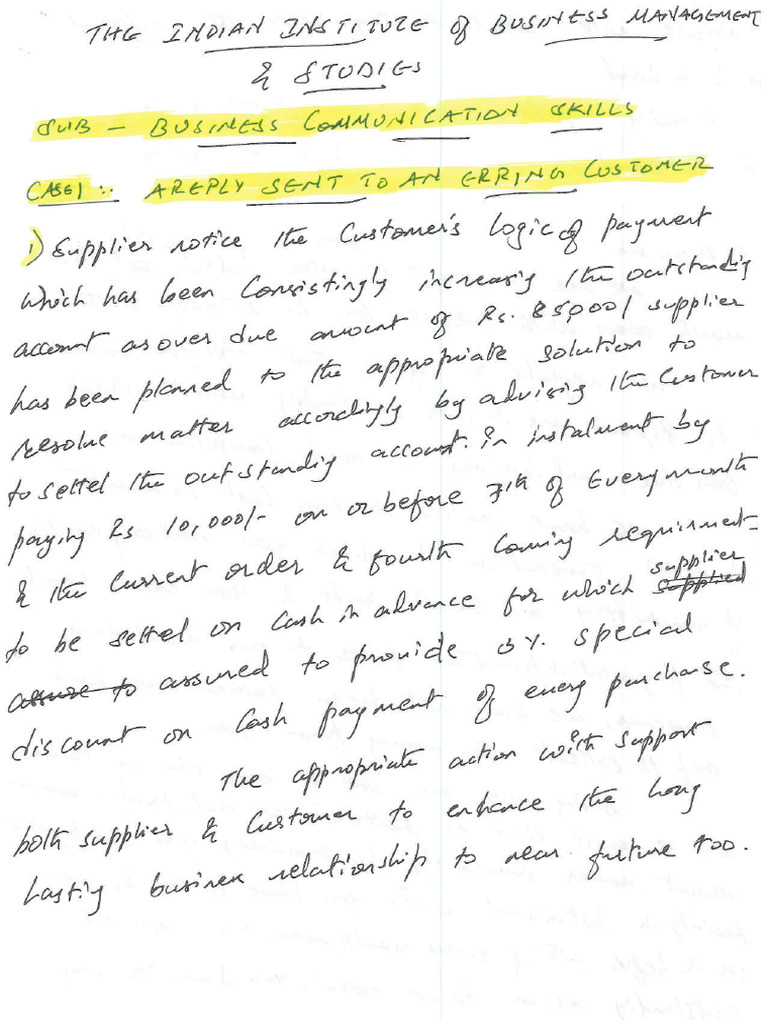 THE INDIAN INSTITUTE of BUSINESS MANAGEMENT
& STUDIES
SUB - BUSINESS COMMUNICATION SKILLS
CASE1 :- A REPLY SENT TO AN ERRING CUSTOMER
1) Supplier notice the Customer's logic of payment
which has been Consistingly increasing the outstanding
account as over due amount of Rs. 85000/ supplier
has been planned to the appropriate solution to
resolve matter accordingly by advising the Customer
to settel the outstanding account. in instalment by
paying Rs 10,000/- on or before 7th of Every month
& the Current order & fourth Coming requirment
to be settel on Cash in advance for which supplier
assured to provide 3% special
discount on Cash payment of every purchase.
The appropriate action with support
both supplier & Customer to enhance the Long
Lasting business relationship to near furture too.